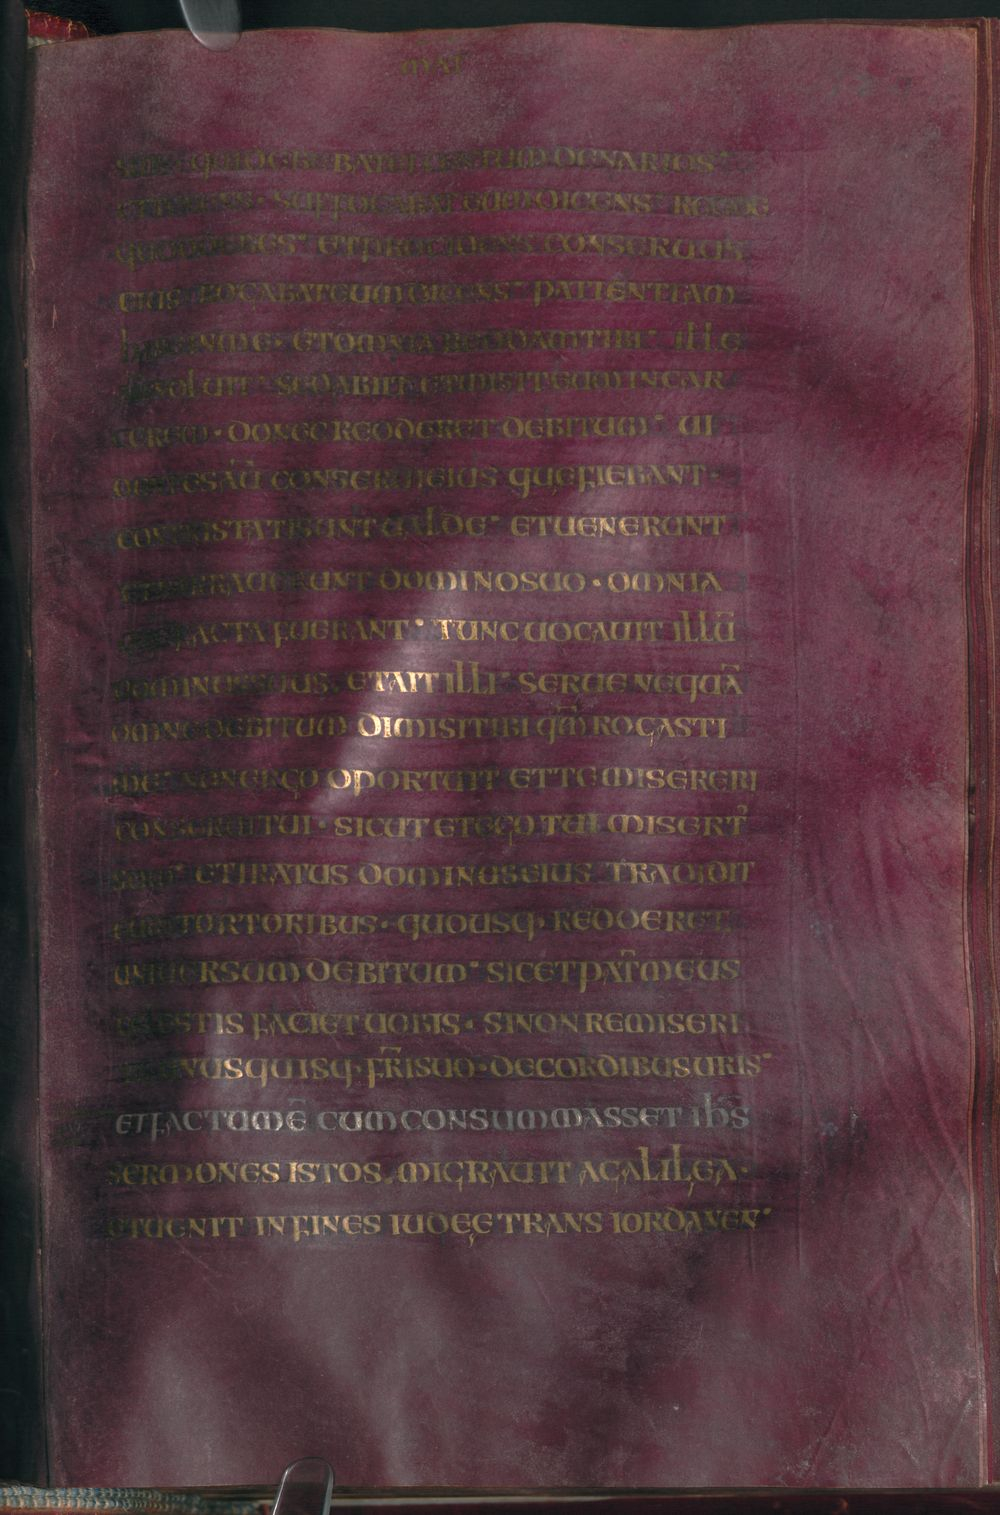 MAT
SUIS QUI DEBEBAT EI CENTUM DENARIOS·
ET TENENS· SUFFOCABAT EUM DICENS· REDDE
QUOD DEBES· ET PROCIDENS CONSERUUS
EIUS ROGABAT EUM DICENS· PATIENTIAM
HABE IN ME· ET OMNIA REDDAM TIBI· ILLE
NOLUIT· SED ABIIT ET MISIT EUM IN CAR
CEREM· DONEC REDDERET DEBITUM· UI
DENTES AŪ CONSERUI EIUS QUE FIEBANT·
CONTRISTATI SUNT UALDE· ET UENERUNT
ET NARRAUERUNT DOMINO SUO· OMNIA
FACTA FUERANT· TUNC UOCAUIT ILLŪ
DOMINUS SUUS· ET AIT ILLI· SERUE NEQUĀ
OMNE DEBITUM DIMISI TIBI QM̄ ROGASTI
ME· NONERGO OPORTUIT ET TE MISERERI
CONSERUI TUI· SICUT ET EGO TUI MISERT᾽
SUM· ET IRATUS DOMINUS EIUS TRADIDIT
EUM TORTORIBUS· QUOUSQ· REDDERET
UNIUERSUM DEBITUM· SIC ET PAT̄ MEUS
CELESTIS FACIET UOBIS· SI NON REMISERI
TIS UNUSQUISQ· FR̄I SUO· DE CORDIBUS URIS·
ET FACTUM Ē CUM CONSUMMASSET IHS̄
SERMONES ISTOS· MIGRAUIT A GALILEA·
ET UENIT IN FINES IUDEĘ TRANS IORDANEN·